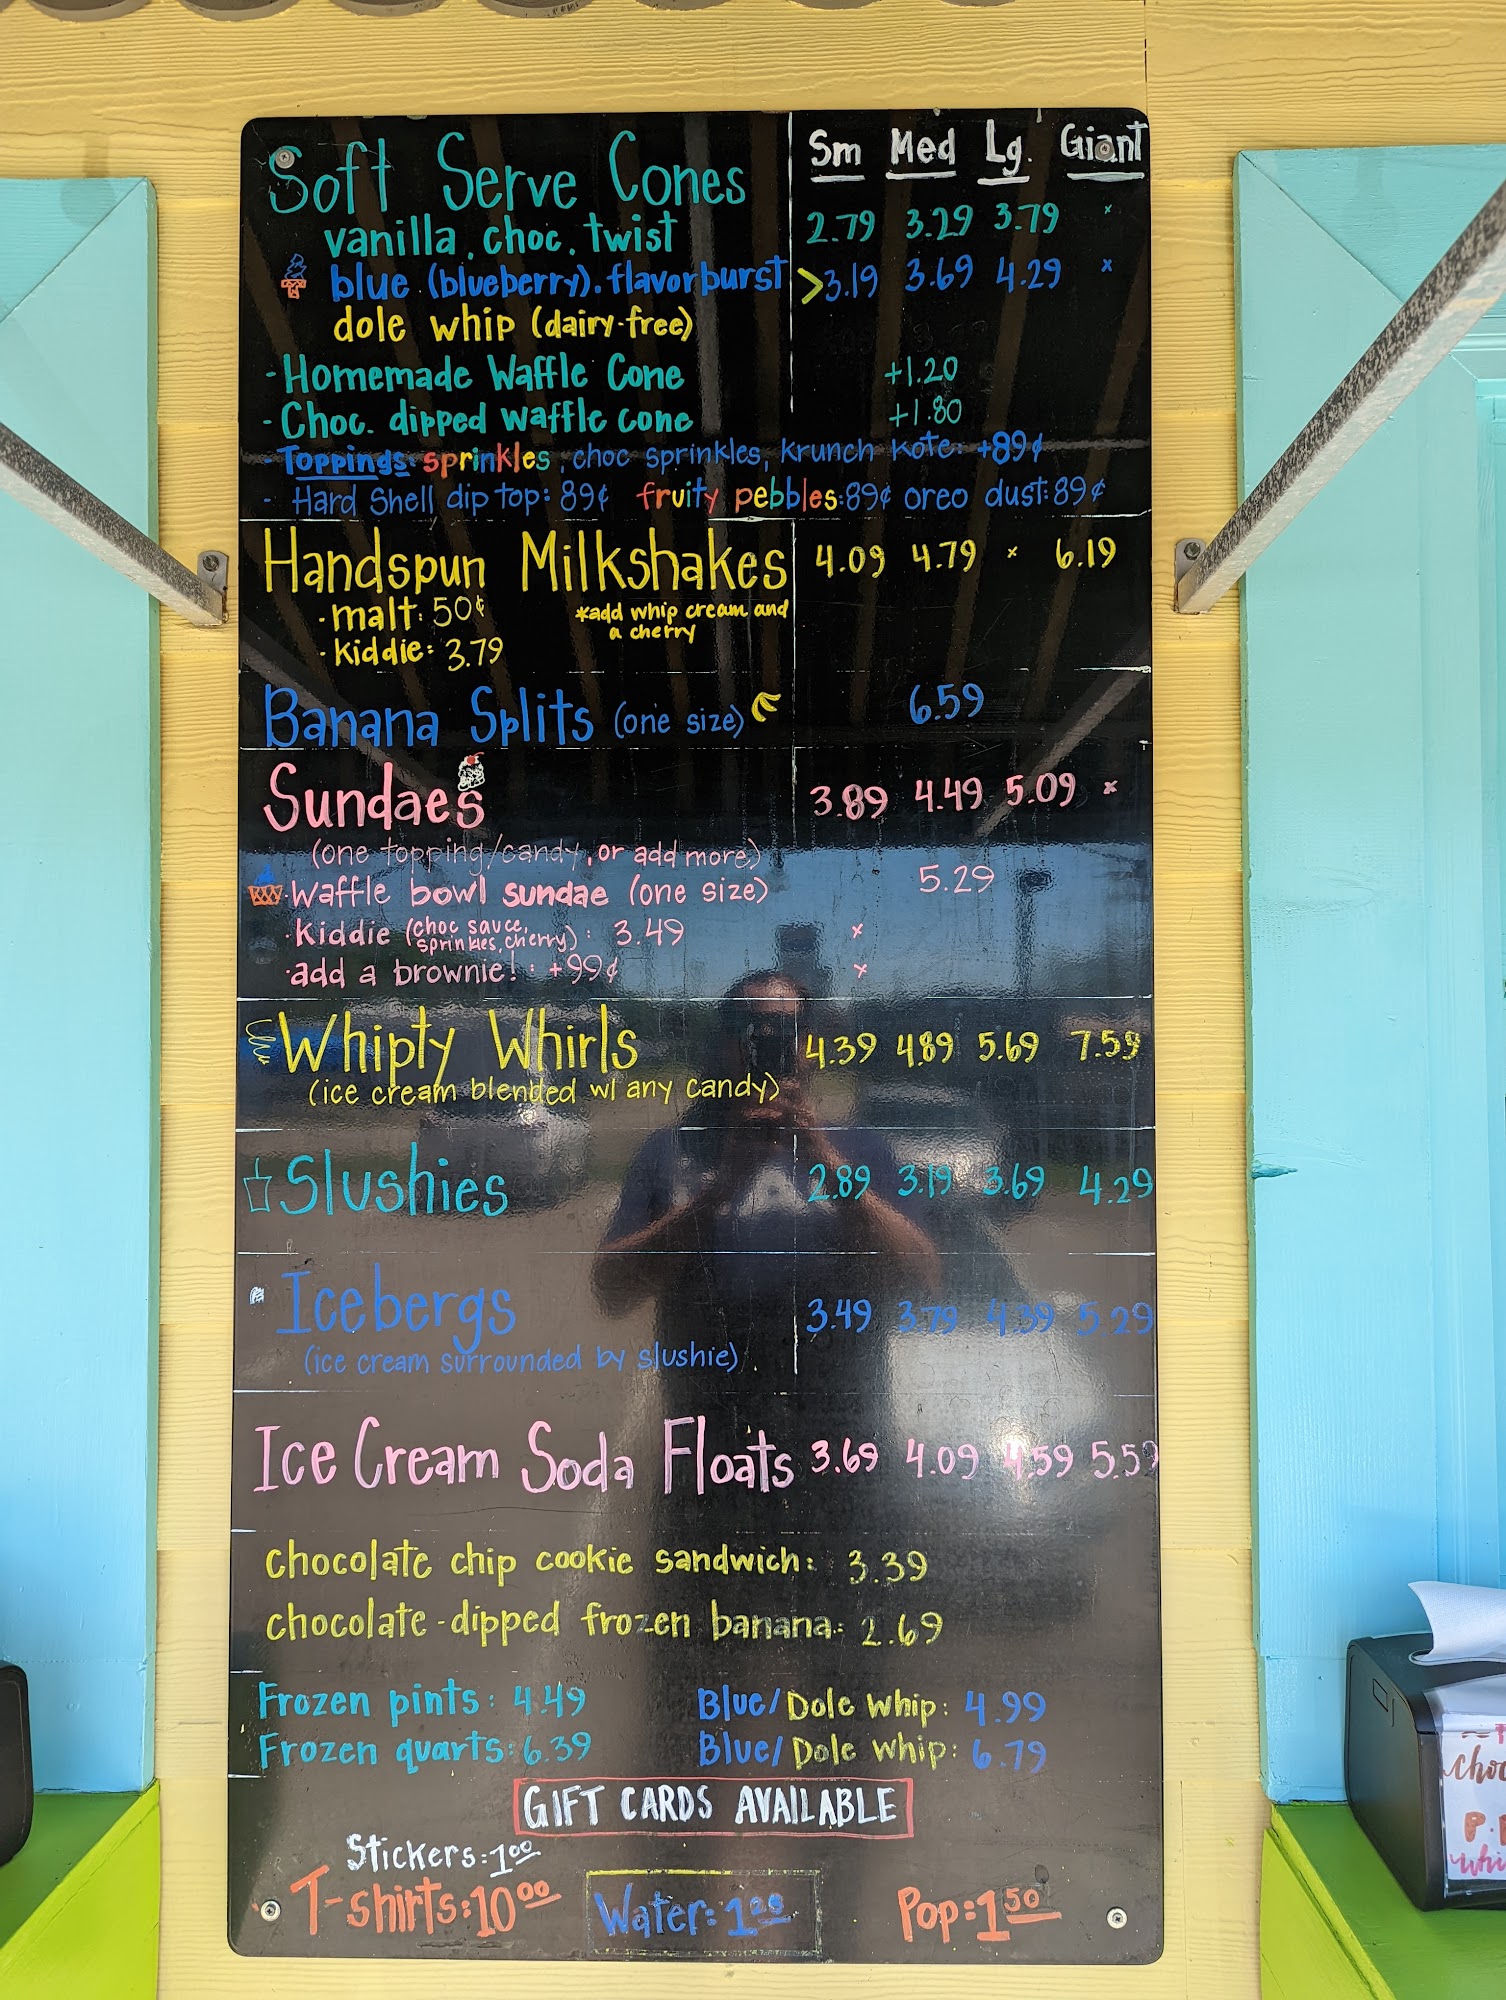 Sm Med Lg. Giant
Soft Serve Cones
vanilla, choc, twist 2.79 3.29 3.79 x
blue (blueberry), flavorburst >3.19 3.69 4.29 x
dole whip (dairy-free)
- Homemade Waffle Cone +1.20
- Choc. dipped waffle cone +1.80
- Toppings: sprinkles, choc sprinkles, krunch kote: +89¢
- Hard Shell dip top: 89¢ fruity pebbles: 89¢ oreo dust: 89¢
Handspun Milkshakes 4.09 4.79 x 6.19
· malt: 50¢ *add whip cream and
a cherry
· kiddie: 3.79
Banana Splits (one size) 6.59
Sundaes 3.89 4.49 5.09 x
(one topping/candy, or add more)
· Waffle bowl sundae (one size) 5.29
· Kiddie (choc sauce, sprinkles, cherry): 3.49 x
· add a brownie!: +99¢ x
Whipty Whirls 4.39 4.89 5.69 7.59
(ice cream blended w/ any candy)
Slushies 2.89 3.19 3.69 4.29
Icebergs 3.49 3.79 4.39 5.29
(ice cream surrounded by slushie)
Ice Cream Soda Floats 3.69 4.09 4.59 5.59
chocolate chip cookie sandwich: 3.39
chocolate-dipped frozen banana: 2.69
Frozen pints: 4.49 Blue/Dole whip: 4.99
Frozen quarts: 6.39 Blue/Dole whip: 6.79
GIFT CARDS AVAILABLE
Stickers: 1.00
T-shirts: 10.00 Water: Pop: 1.50
choc
P.
whi